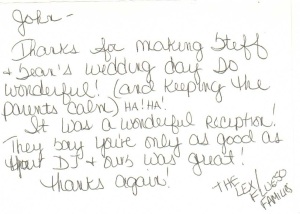 John-
Thanks for making Steff
+ Sean's wedding day so
wonderful! (and keeping the
parents calm) HA! HA!
It was a wonderful reception!
They say you're only as good as
your DJ + ours was great!
Thanks again!
THE LEX/
FAMILIES